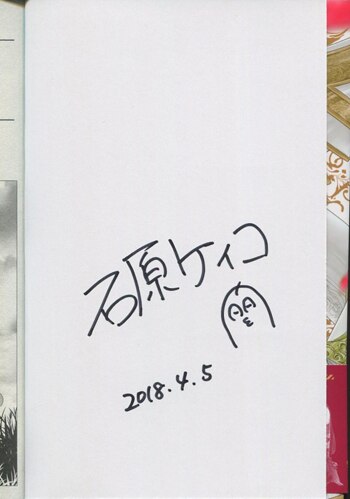 石原ケイコ
2018.4.5